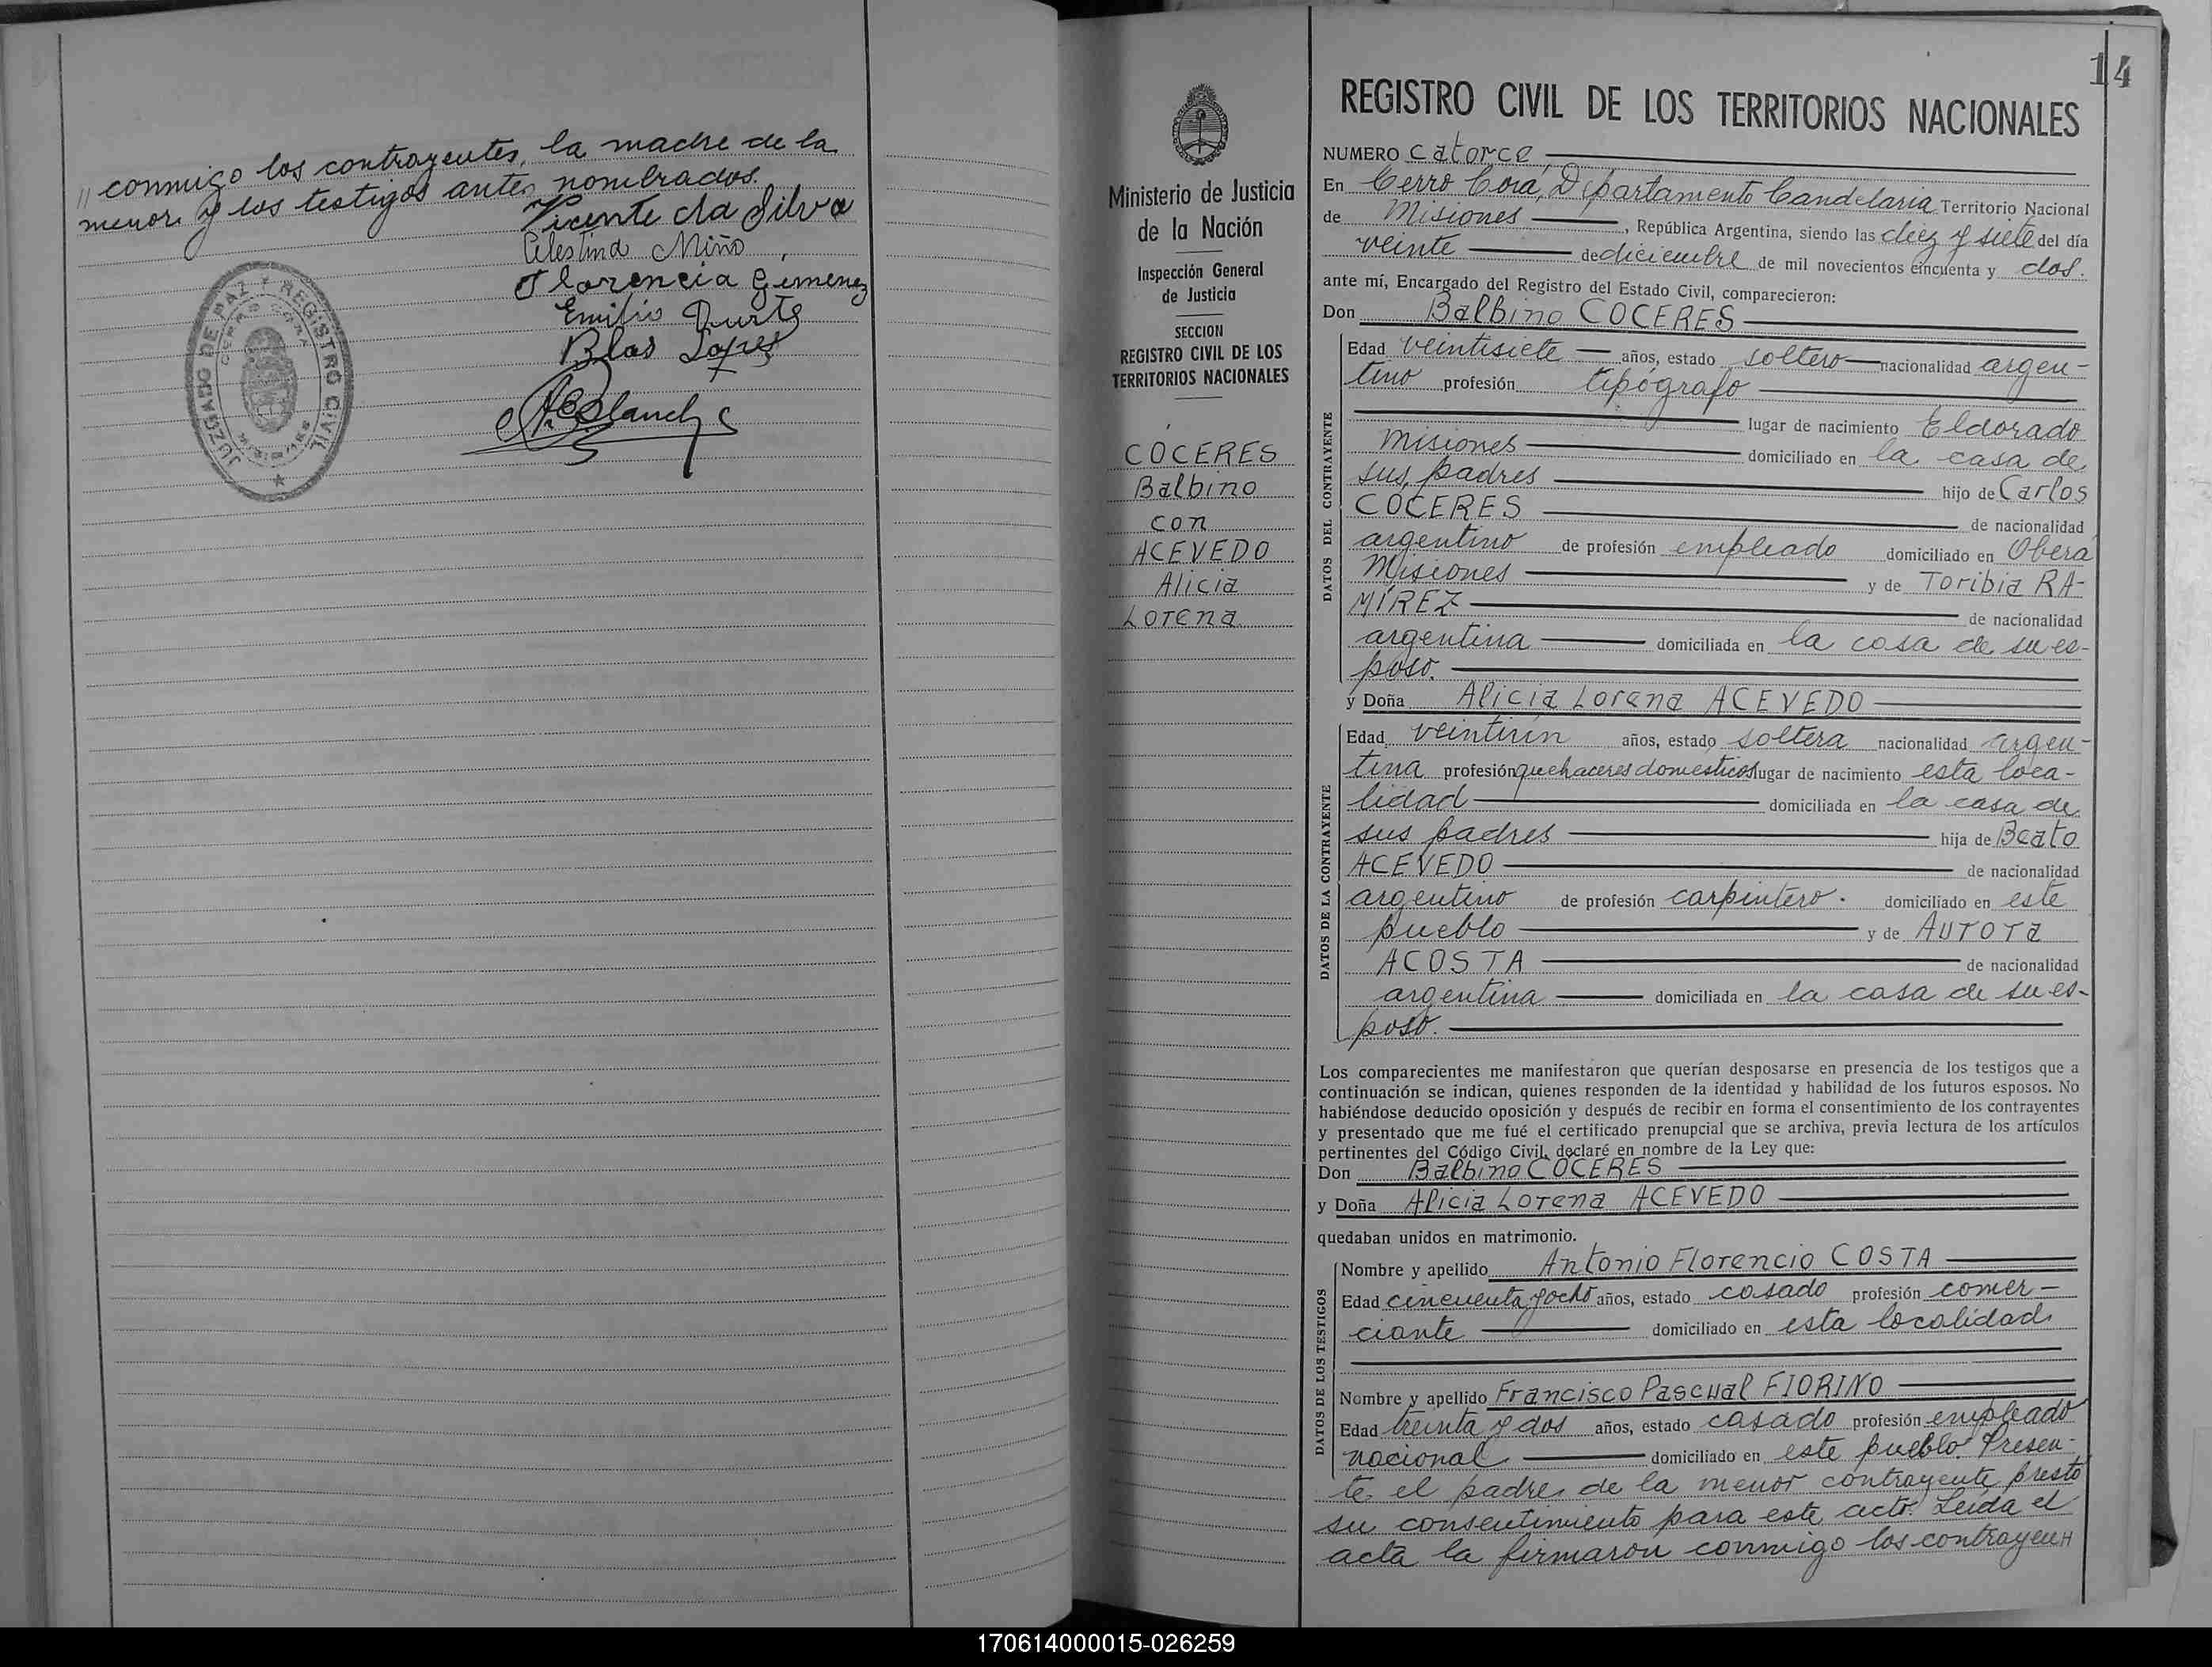 " conmigo los contrayentes, la madre de la
menor y los testigos antes nombrados.
Vicente da Silva
Celestina Miño
Florencia Gimenez
Emilio Duarte
Blas Lopez
JUZGADO DE PAZ Y REGISTRO CIVIL
CERRO CORA
MISIONES
14
Ministerio de Justicia
de la Nación
Inspección General
de Justicia
SECCION
REGISTRO CIVIL DE LOS
TERRITORIOS NACIONALES
COCERES
Balbino
con
ACEVEDO
Alicia
Lorena
REGISTRO CIVIL DE LOS TERRITORIOS NACIONALES
NUMERO Catorce
En Cerro Corá, Departamento Candelaria Territorio Nacional
de Misiones , República Argentina, siendo las diez y siete del día
veinte de diciembre de mil novecientos cincuenta y dos.
ante mí, Encargado del Registro del Estado Civil, comparecieron:
Don Balbino COCERES
DATOS DEL CONTRAYENTE
Edad veintisiete años, estado soltero nacionalidad argen-
tino profesión tipógrafo
lugar de nacimiento Eldorado
Misiones domiciliado en la casa de
sus padres hijo de Carlos
COCERES de nacionalidad
argentino de profesión empleado domiciliado en Oberá
Misiones y de Toribia RA-
MÍREZ de nacionalidad
argentina domiciliada en la casa de su es-
poso.
y Doña Alicia Lorena ACEVEDO
DATOS DE LA CONTRAYENTE
Edad veintiún años, estado soltera nacionalidad argen-
tina profesión quehaceres domésticos lugar de nacimiento esta loca-
lidad domiciliada en la casa de
sus padres hija de Beato
ACEVEDO de nacionalidad
argentino de profesión carpintero. domiciliado en este
pueblo y de Aurora
ACOSTA de nacionalidad
argentina domiciliada en la casa de su es-
poso.
Los comparecientes me manifestaron que querían desposarse en presencia de los testigos que a
continuación se indican, quienes responden de la identidad y habilidad de los futuros esposos. No
habiéndose deducido oposición y después de recibir en forma el consentimiento de los contrayentes
y presentado que me fué el certificado prenupcial que se archiva, previa lectura de los artículos
pertinentes del Código Civil, declaré en nombre de la Ley que:
Don Balbino COCERES
y Doña Alicia Lorena ACEVEDO
quedaban unidos en matrimonio.
DATOS DE LOS TESTIGOS
Nombre y apellido Antonio Florencio COSTA
Edad cincuenta y ocho años, estado casado profesión comer-
ciante domiciliado en esta localidad.
Nombre y apellido Francisco Pascual FIORINO
Edad treinta y dos años, estado casado profesión empleado
nacional domiciliado en este pueblo. Presen-
te el padre de la menor contrayente prestó
su consentimiento para este acto. Leída el
acta la firmaron conmigo los contrayen"
170614000015-026259